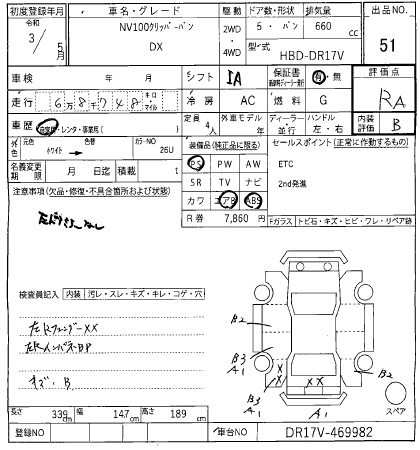 初度登録年月 車名・グレード 駆動 ドア数・形状 排気量 出品NO.
令和 3/5月 NV100クリッパーバン 2WD・4WD 5・バン 660 cc 51
DX 型式 HBD-DR17V
車検 年 月 シフト IA 保証書 有・無 評価点
走行 6万8千748 キロ・マイル 冷房 AC 燃料 G RA
車歴 自家用・レンタ・事業用( ) 定員 4人 外車モデル 年 ディーラー・並行 ハンドル 左・右 内装評価 B
外色 元色 ホワイト 色替 カラーNO 26U 装備品(純正品に限る) セールスポイント(正常に作動するもの)
名義変更期限 月 日迄 積載 t PS PW AW ETC
注意事項(欠品・修復・不具合箇所および状態) SR TV ナビ 2nd発進
カワ エアB ABS
R券 7,860円 Fガラス トビ石・キズ・ヒビ・ワレ・リペア跡
検査員記入 内装 汚レ・スレ・キズ・キレ・コゲ・穴
B2
B3 A1
B2
B3 A1
A1
X X X X
スペア
長さ 339cm 幅 147cm 高さ 189cm
登録NO 車台NO DR17V-469982